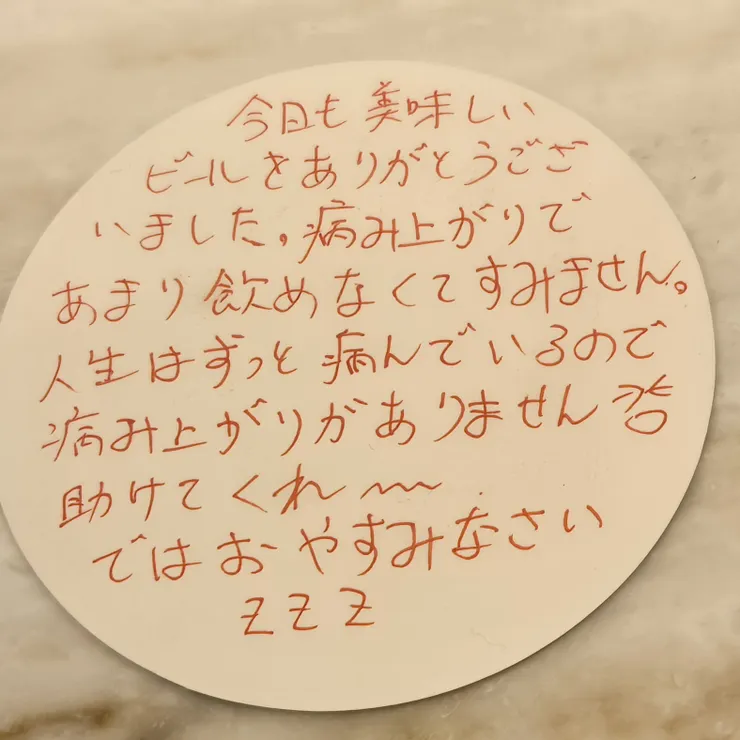 今日も美味しい
ビールをありがとうござ
いました。病み上がりで
あまり飲めなくてすみません。
人生はずっと病んでいるので
病み上がりがありません
助けてくれ〜〜
ではおやすみなさい
ZZZ